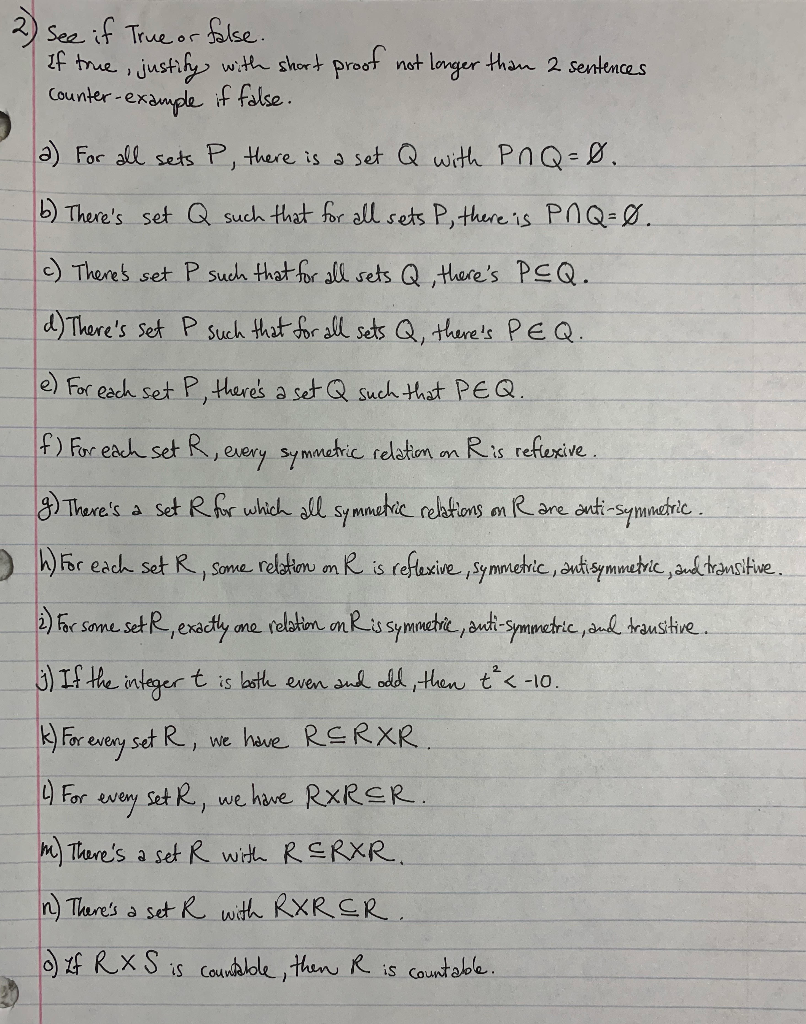 2) See if True or false.
If true, justify with short proof not longer than 2 sentences
Counter-example if false.
a) For all sets P, there is a set Q with P∩Q=Ø.
b) There's set Q such that for all sets P, there is P∩Q=Ø.
c) There's set P such that for all sets Q, there's P⊆Q.
d) There's set P such that for all sets Q, there's P∈Q.
e) For each set P, there's a set Q such that P∈Q.
f) For each set R, every symmetric relation on R is reflexive.
g) There's a set R for which all symmetric relations on R are anti-symmetric.
h) For each set R, some relation on R is reflexive, symmetric, antisymmetric, and transitive.
i) For some set R, exactly one relation on R is symmetric, anti-symmetric, and transitive.
j) If the integer t is both even and odd, then t² < -10.
k) For every set R, we have R⊆R×R.
l) For every set R, we have R×R⊆R.
m) There's a set R with R⊆R×R.
n) There's a set R with R×R⊆R.
o) If R×S is countable, then R is countable.